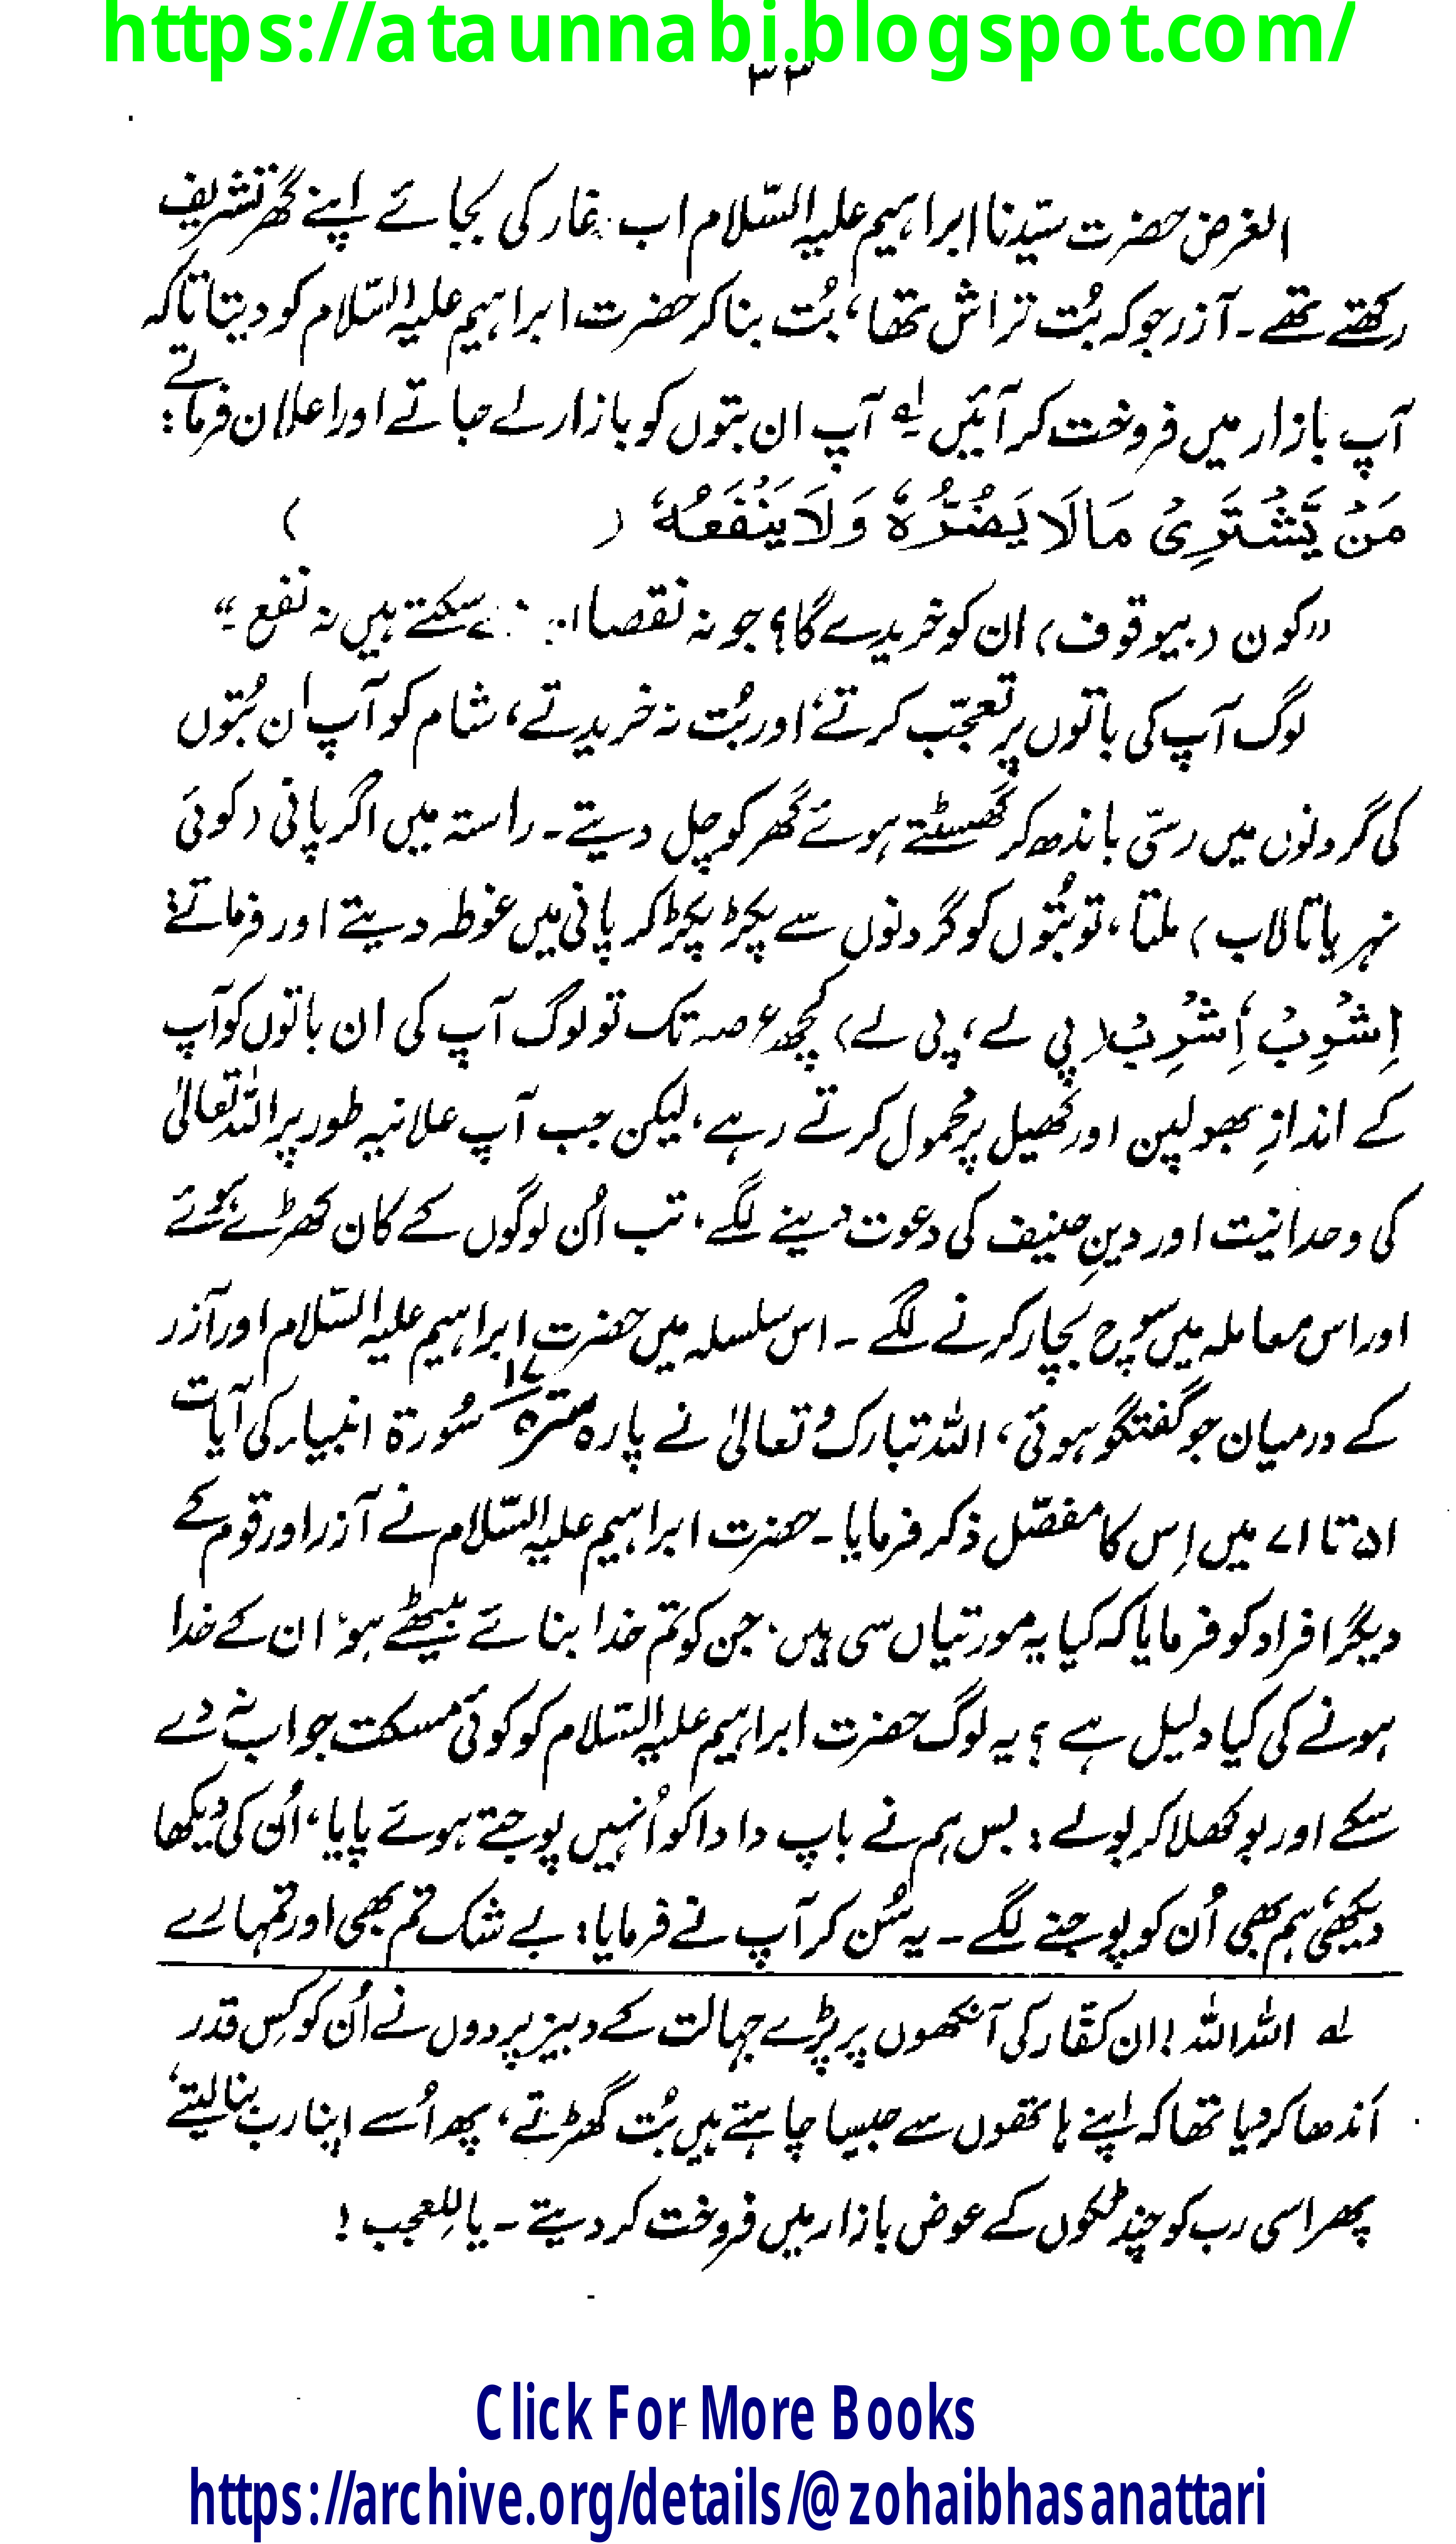 https://ataunnabi.blogspot.com/
۳۳
الغرض حضرت سیّدنا ابراہیم علیہ السّلام اب غار کی بجائے اپنے گھر تشریف
رکھتے تھے۔ آزر جو کہ بُت تراش تھا، بُت بنا کر حضرت ابراہیم علیہ السّلام کو دیتا تاکہ
آپ بازار میں فروخت کر آئیں لہ آپ ان بتوں کو بازار لے جاتے اور اعلان فرماتے:
مَنْ یَّشْتَرِیْ مَا لَا یَضُرُّہٗ وَلَا یَنْفَعُہٗ ( )
”کون (بیوقوف) ان کو خریدے گا؟ جو نہ نقصان دے سکتے ہیں نہ نفع۔“
لوگ آپ کی باتوں پر تعجّب کرتے، اور بُت نہ خریدتے، شام کو آپ ان بُتوں
کی گردنوں میں رسّی باندھ کر گھسیٹتے ہوئے گھر کو چل دیتے۔ راستہ میں اگر پانی (کوئی
نہر یا تالاب) ملتا، تو بُتوں کو گردنوں سے پکڑ پکڑ کر پانی میں غوطہ دیتے اور فرماتے:
اِشْرِبْ، اِشْرِبْ (پی لے، پی لے) کچھ عرصہ تک تو لوگ آپ کی ان باتوں کو آپ
کے اندازِ بھولپن اور کھیل پر محمول کرتے رہے، لیکن جب آپ علانیہ طور پر اللہ تعالیٰ
کی وحدانیت اور دینِ حنیف کی دعوت دینے لگے، تب اُن لوگوں کے کان کھڑے ہوئے
اور اس معاملہ میں سوچ بچار کرنے لگے۔ اس سلسلہ میں حضرت ابراہیم علیہ السّلام اور آزر
کے درمیان جو گفتگو ہوئی، اللہ تبارک و تعالیٰ نے پارہ سترہ ۱۷ سُورۃ انبیاء کی آیات
۵۱ تا ۷۱ میں اِس کا مفصّل ذکر فرمایا۔ حضرت ابراہیم علیہ السّلام نے آزر اور قوم کے
دیگر افراد کو فرمایا کہ کیا یہ مورتیاں سی ہیں، جن کو تم خدا بنائے بیٹھے ہو، ان کے خدا
ہونے کی کیا دلیل ہے؟ یہ لوگ حضرت ابراہیم علیہ السّلام کو کوئی مسکت جواب نہ دے
سکے اور بوکھلا کر بولے: بس ہم نے باپ دادا کو اُنہیں پوجتے ہوئے پایا، اُن کی دیکھا
دیکھی، ہم بھی اُن کو پوجنے لگے۔ یہ سُن کر آپ نے فرمایا: بے شک تم بھی اور تمہارے
لہ اللہ اللہ! ان کفّار کی آنکھوں پر پڑے جہالت کے دبیز پردوں نے اُن کو کِس قدر
اَندھا کر دیا تھا کہ اپنے ہاتھوں سے جیسا چاہتے ہیں بُت گھڑتے، پھر اُسے اپنا رب بنا لیتے،
پھر اسی رب کو چند ٹکوں کے عوض بازار میں فروخت کر دیتے۔ یا للعجب!
Click For More Books
https://archive.org/details/@zohaibhasanattari